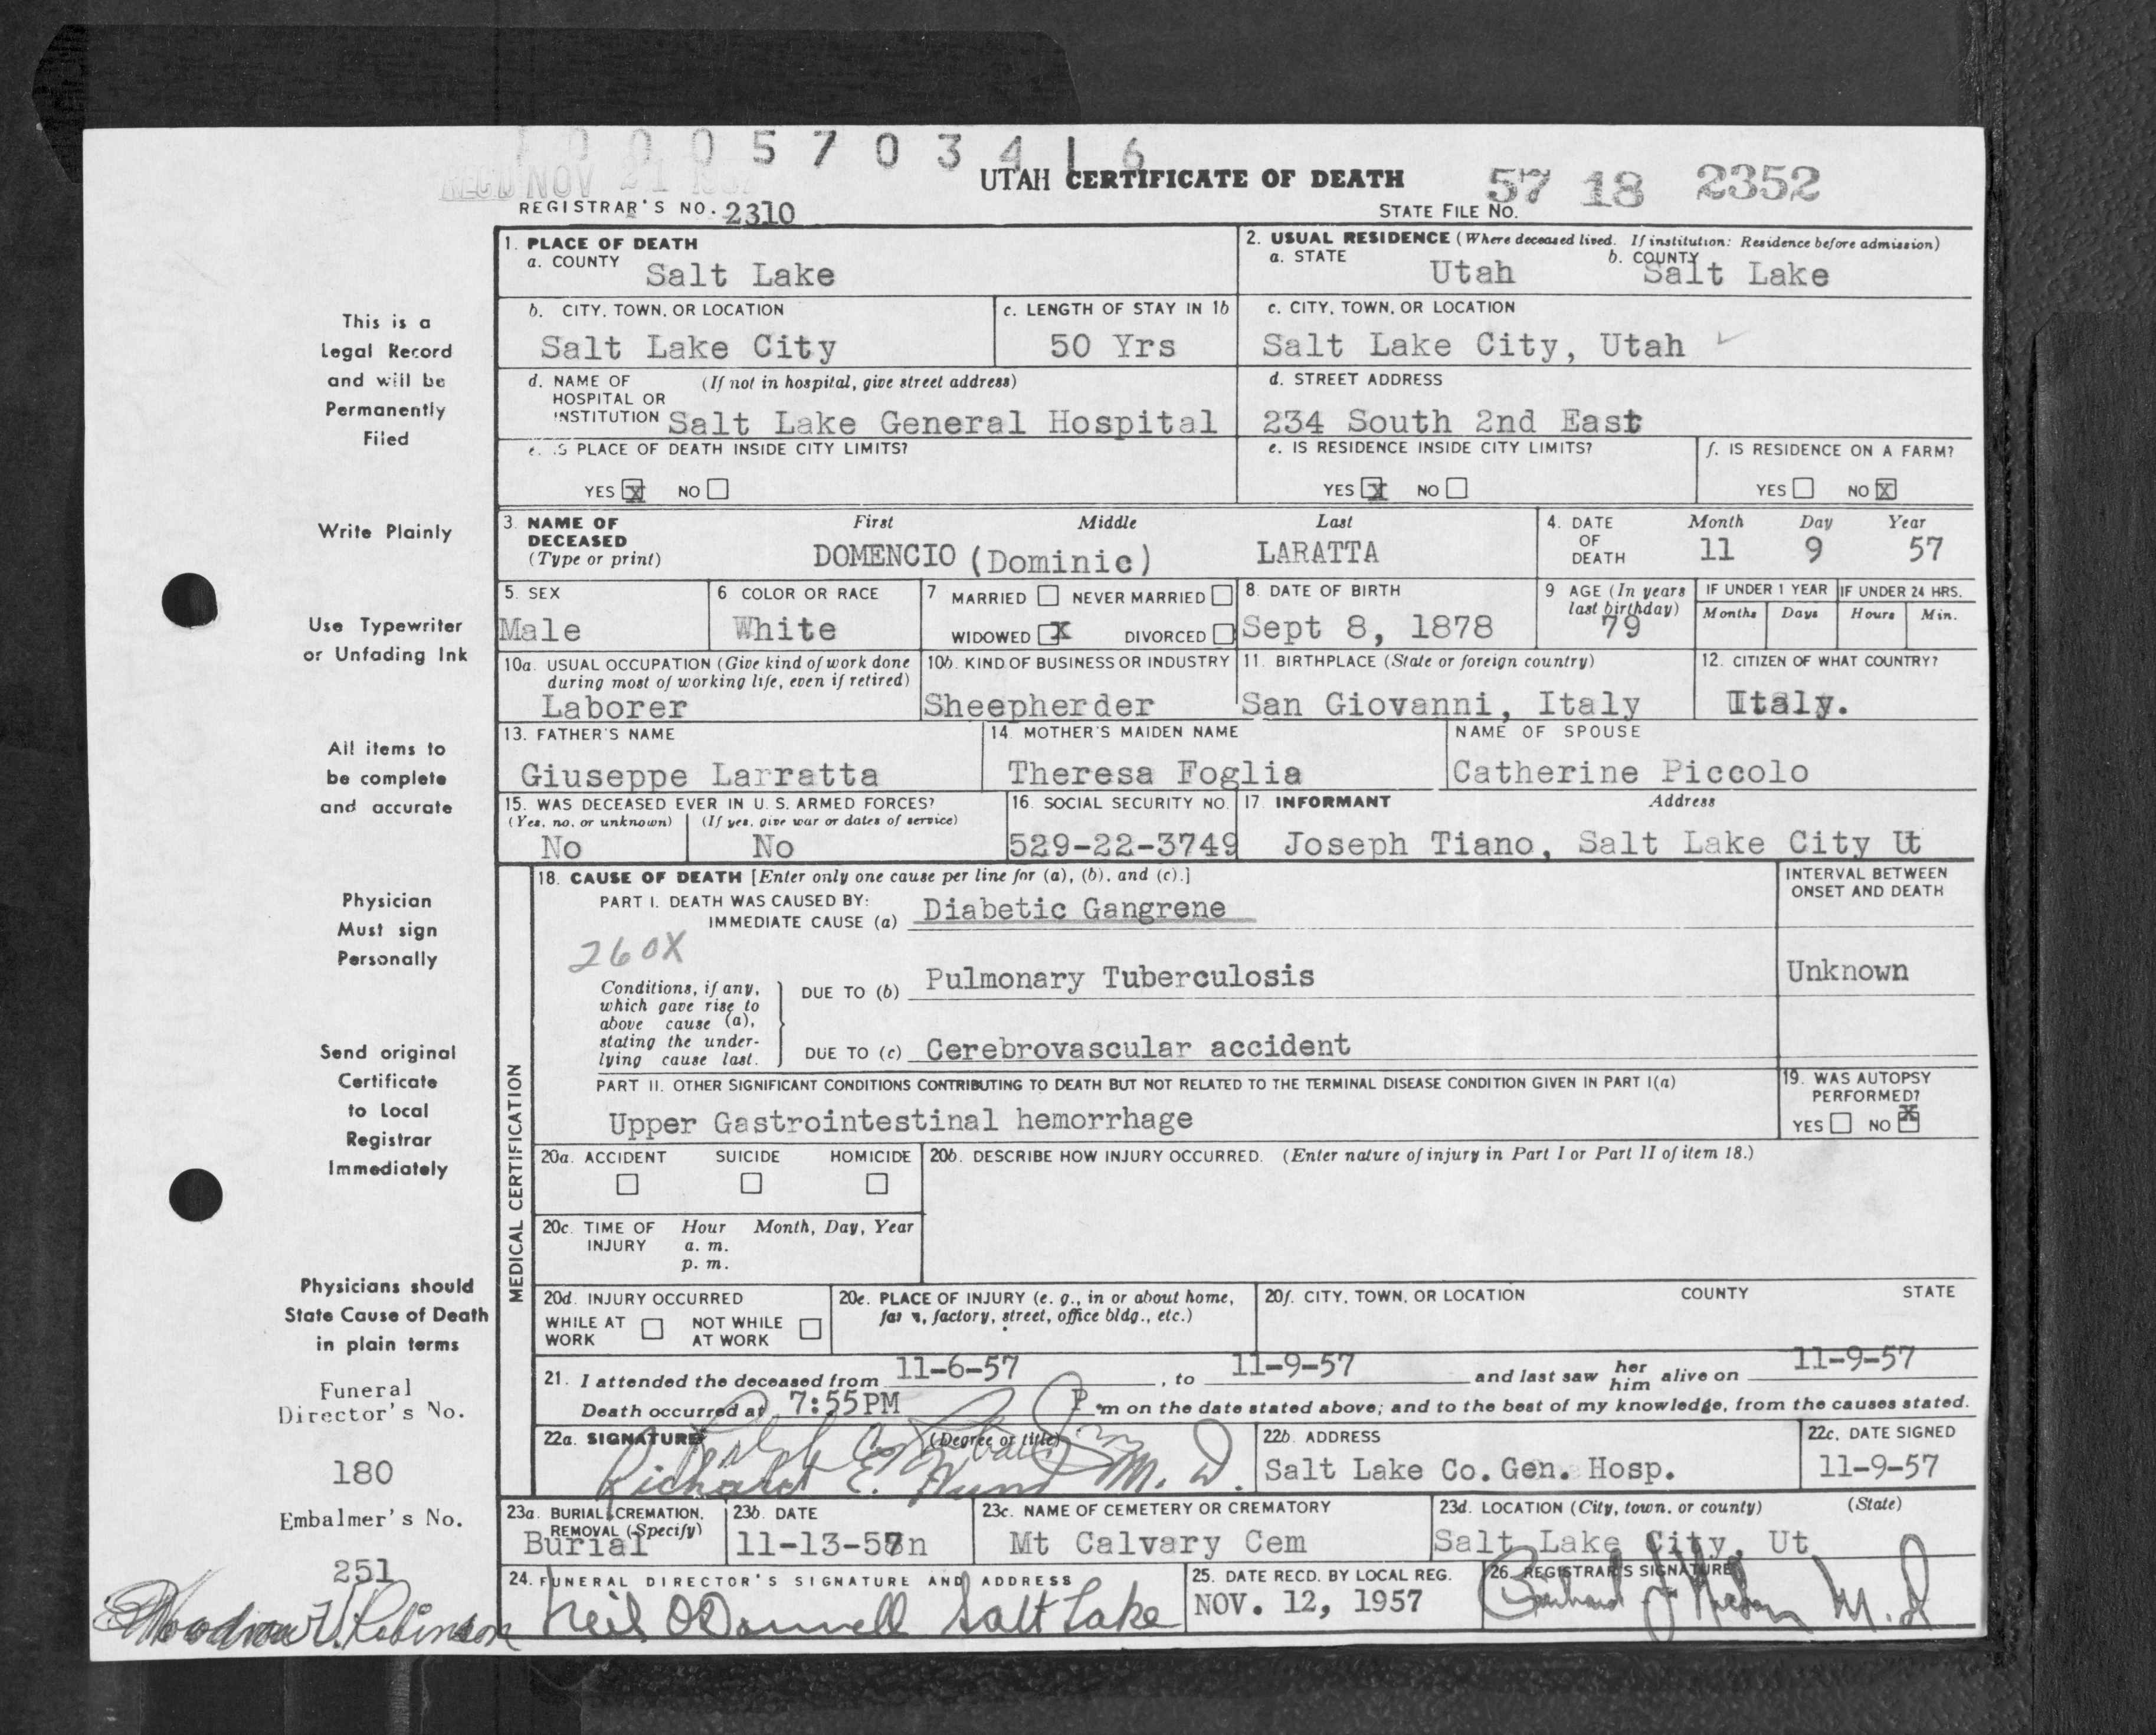 1 0 0 0 5 7 0 3 4 1 6
REC'D NOV 21 1957
UTAH CERTIFICATE OF DEATH
57 18 2352
REGISTRAR'S NO. 2310
STATE FILE NO.
1. PLACE OF DEATH
a. COUNTY Salt Lake
2. USUAL RESIDENCE (Where deceased lived. If institution: Residence before admission)
a. STATE Utah b. COUNTY Salt Lake
b. CITY, TOWN, OR LOCATION
Salt Lake City
c. LENGTH OF STAY IN 1b
50 Yrs
c. CITY, TOWN, OR LOCATION
Salt Lake City, Utah
d. NAME OF (If not in hospital, give street address)
HOSPITAL OR
INSTITUTION Salt Lake General Hospital
d. STREET ADDRESS
234 South 2nd East
e. IS PLACE OF DEATH INSIDE CITY LIMITS?
YES X NO
e. IS RESIDENCE INSIDE CITY LIMITS?
YES X NO
f. IS RESIDENCE ON A FARM?
YES NO X
3. NAME OF DECEASED (Type or print)
First Middle Last
DOMENCIO (Dominic) LARATTA
4. DATE OF DEATH
Month Day Year
11 9 57
5. SEX
Male
6 COLOR OR RACE
White
7 MARRIED NEVER MARRIED
WIDOWED X DIVORCED
8. DATE OF BIRTH
Sept 8, 1878
9 AGE (In years last birthday)
79
IF UNDER 1 YEAR
Months Days
IF UNDER 24 HRS.
Hours Min.
10a. USUAL OCCUPATION (Give kind of work done
during most of working life, even if retired)
Laborer
10b. KIND OF BUSINESS OR INDUSTRY
Sheepherder
11. BIRTHPLACE (State or foreign country)
San Giovanni, Italy
12. CITIZEN OF WHAT COUNTRY?
Italy.
13. FATHER'S NAME
Giuseppe Larratta
14. MOTHER'S MAIDEN NAME
Theresa Foglia
NAME OF SPOUSE
Catherine Piccolo
15. WAS DECEASED EVER IN U. S. ARMED FORCES?
(Yes, no, or unknown) (If yes, give war or dates of service)
No No
16. SOCIAL SECURITY NO.
529-22-3749
17. INFORMANT Address
Joseph Tiano, Salt Lake City Ut
MEDICAL CERTIFICATION
18. CAUSE OF DEATH [Enter only one cause per line for (a), (b), and (c).]
INTERVAL BETWEEN
ONSET AND DEATH
PART I. DEATH WAS CAUSED BY:
IMMEDIATE CAUSE (a) Diabetic Gangrene
260X
Conditions, if any,
which gave rise to
above cause (a),
stating the under-
lying cause last.
DUE TO (b) Pulmonary Tuberculosis
Unknown
DUE TO (c) Cerebrovascular accident
PART II. OTHER SIGNIFICANT CONDITIONS CONTRIBUTING TO DEATH BUT NOT RELATED TO THE TERMINAL DISEASE CONDITION GIVEN IN PART I(a)
Upper Gastrointestinal hemorrhage
19. WAS AUTOPSY
PERFORMED?
YES NO X
20a. ACCIDENT SUICIDE HOMICIDE
20b. DESCRIBE HOW INJURY OCCURRED. (Enter nature of injury in Part I or Part II of item 18.)
20c. TIME OF INJURY
Hour Month, Day, Year
a. m.
p. m.
20d. INJURY OCCURRED
WHILE AT WORK NOT WHILE AT WORK
20e. PLACE OF INJURY (e. g., in or about home,
farm, factory, street, office bldg., etc.)
20f. CITY, TOWN, OR LOCATION COUNTY STATE
21. I attended the deceased from 11-6-57, to 11-9-57 and last saw her him alive on 11-9-57
Death occurred at 7:55PM P m on the date stated above; and to the best of my knowledge, from the causes stated.
22a. SIGNATURE (Degree or title)
Richard E. M. D.
22b. ADDRESS
Salt Lake Co. Gen. Hosp.
22c. DATE SIGNED
11-9-57
23a. BURIAL, CREMATION,
REMOVAL (Specify)
Burial
23b. DATE
11-13-57n
23c. NAME OF CEMETERY OR CREMATORY
Mt Calvary Cem
23d. LOCATION (City, town, or county) (State)
Salt Lake City, Ut
24. FUNERAL DIRECTOR'S SIGNATURE AND ADDRESS
Neil O'Donnell Salt Lake
25. DATE RECD. BY LOCAL REG.
NOV. 12, 1957
26. REGISTRAR'S SIGNATURE
M.D
This is a
Legal Record
and will be
Permanently
Filed
Write Plainly
Use Typewriter
or Unfading Ink
All items to
be complete
and accurate
Physician
Must sign
Personally
Send original
Certificate
to Local
Registrar
Immediately
Physicians should
State Cause of Death
in plain terms
Funeral
Director's No.
180
Embalmer's No.
251
Woodrow V. Robinson